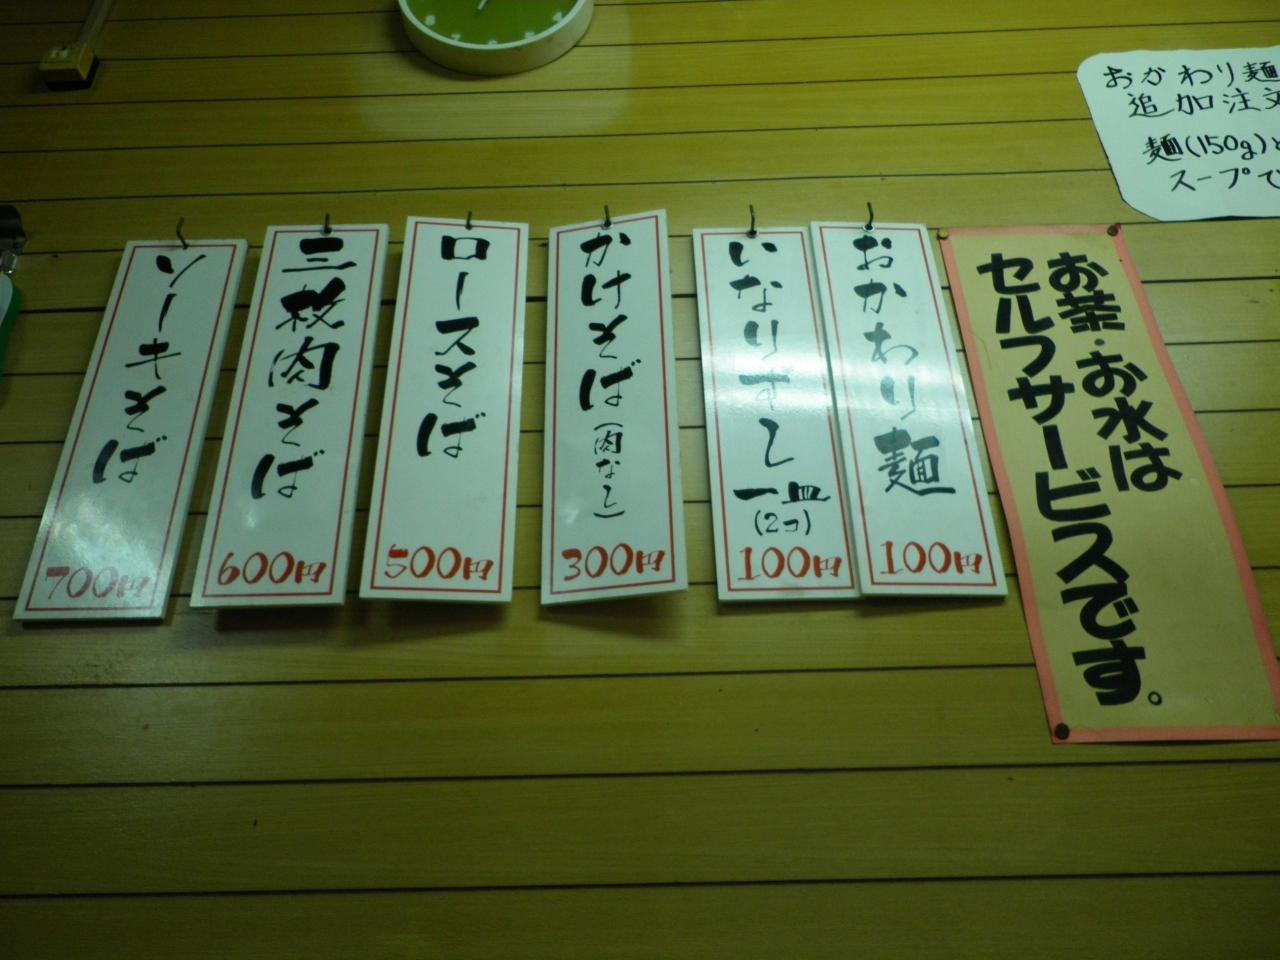 ソーキそば
700円
三枚肉そば
600円
ロースそば
500円
かけそば(肉なし)
300円
いなりずし
一皿
(2コ)
100円
おかわり麺
100円
お茶・お水は
セルフサービスです。
おかわり麺
追加注文
麺(150g)と
スープで